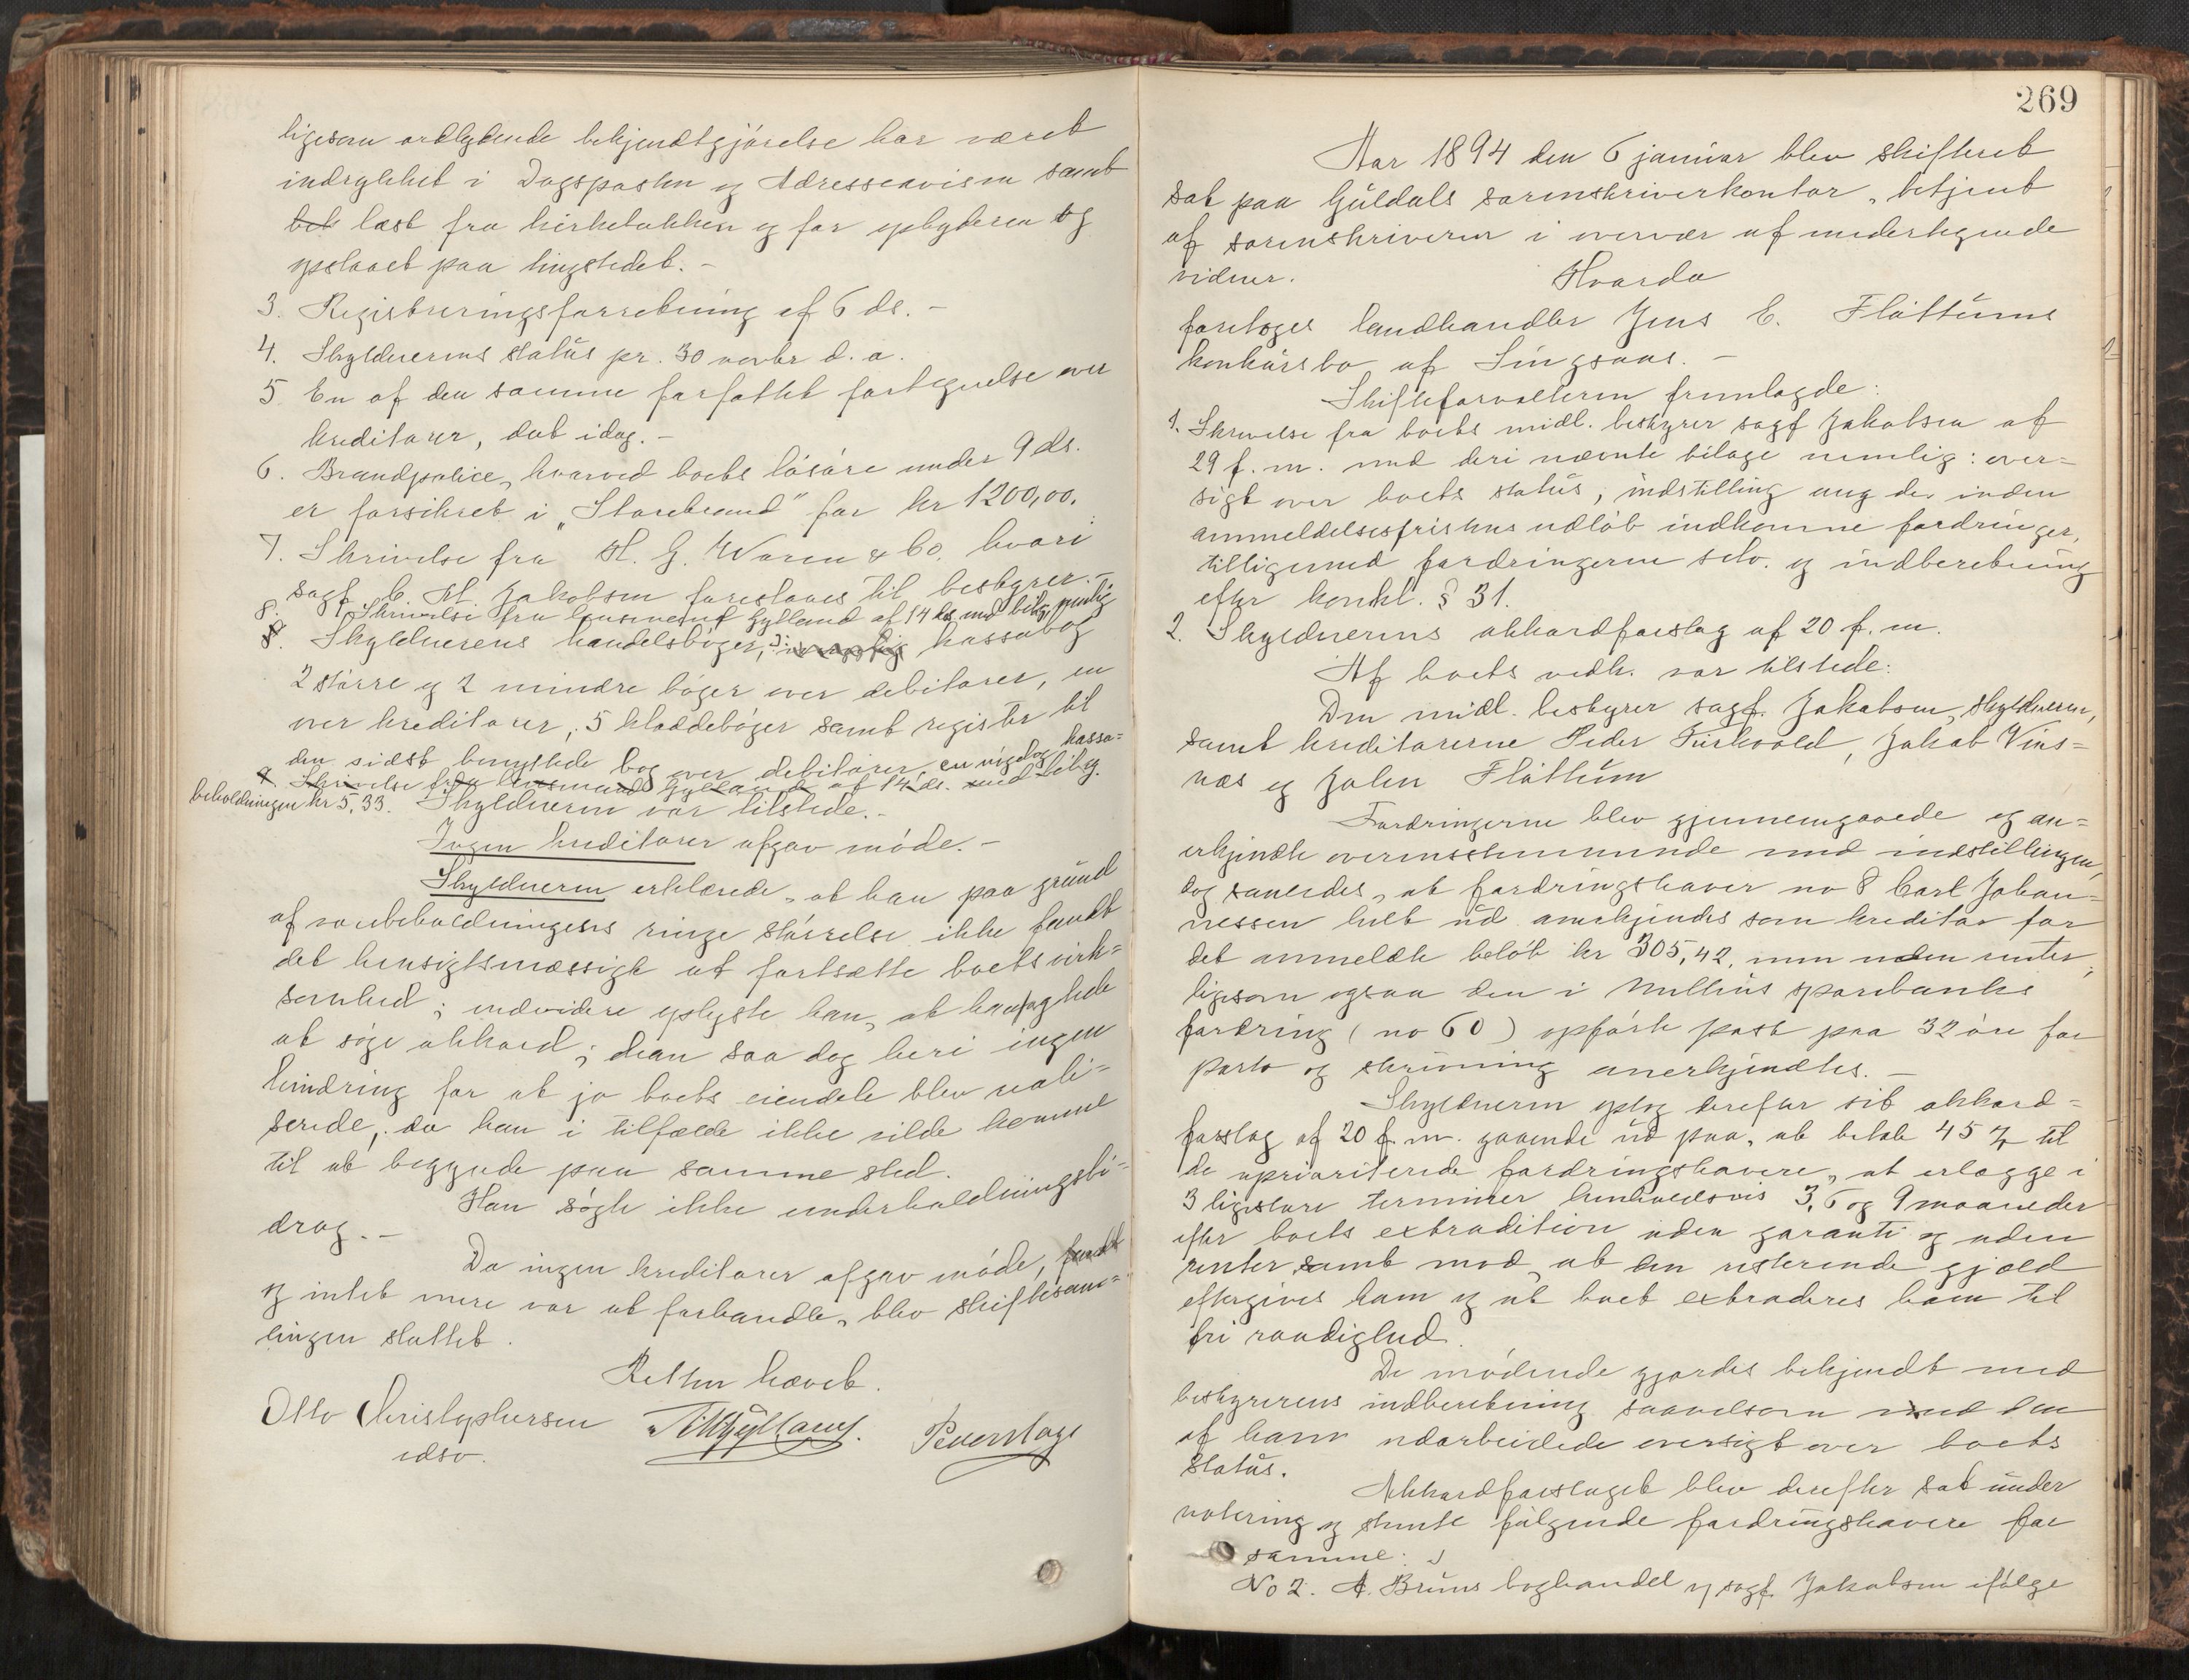 ligesom ordlydende bekjendtgjørelse har været
indrykket i Dagsposten og Adresseavisen samt
læst fra kirkebakken og for opbyderen og
opslaaet paa tingstedet. –
3. Registreringsforretning af 6 ds. –
4. Skyldnerens status pr. 30 novbr d. a.
5 En af den samme forfattet fortegnelse over
kreditorer, dat idag. –
6. Brandpolice, hvorved boets løsøre under 9 ds.
er forsikret i "Storebrand" for kr 1200,00.
7. Skrivelse fra H. G. Waren & Co. hvori
sagf. C. M. Jakobsen foreslaaes til bestyrer. –
8. Skrivelse fra lensmand Gylland af 14 ds med bilag nemlig
Skyldnerens handelsbøger, kassabog
2 større og 2 mindre bøger over debitorer, en
over kreditorer, 5 kladdebøger samt register til
den sidst benyttede bog over debitorer, en kassa=
Skrivelse fra lensmand Gylland af 14 ds. med bilag.
beholdningen kr 5,33. Skyldneren var tilstede. –
Ingen kreditorer afgav møde. –
Skyldneren erklærede, at han paa grund
af varebeholdningens ringe størrelse ikke fandt
det hensigtsmæssigt at fortsætte boets virk=
somhed; endvidere oplyste han, at han agtede
at søge akkord; dean saa dog heri ingen
hindring for at jo boets eiendele blev reali=
serede, da han i tilfælde ikke vilde komme
til at begynde paa samme sted.
Han søgte ikke underholdningsbi=
drag. –
Da ingen kreditorer afgav møde,
og intet mere var at forhandle, blev skiftesam=
lingen sluttet.
Retten hævet.
Otto Christophersen Gylland. P. Evenstage
edsv.
269
Aar 1894 den 6 januar blev skifteret
sat paa Guldals sorenskriverkontor, betjent
af sorenskriveren i overvær af undertegnede
vidner. Hvorda
foretoges landhandler Jens E. Flåttums
konkursbo af Singsaas. –
Skifteforvalteren fremlagde:
1. Skrivelse fra boets midl. bestyrer sagf Jakobsen af
29 f. m. med deri nævnte bilage nemlig: over=
sigt over boets status, indstilling ang de inden
anmeldelsesfristens udløb indkomne fordringer,
tilligemed fordringerne selv. og indberetning
efter konkl. § 31.
2. Skyldnerens akkordforslag af 20 f. m.
Af boets vedk. var tilstede:
Den midl. bestyrer sagf. Jakobsen, skyldneren,
samt kreditorerne Peder Furkvold, Jakob Vins=
næs og John Flåttum
Fordringerne blev gjennemgaaede og an=
erkjendte overensstemmende med indstillingen,
dog saaledes, at fordringshaver no 8 Carl Johan=
nessen helt ud anerkjendes som kreditor for
det anmeldte beløb kr 305,42, men uden renter,
ligesom ogsaa den i Melhus sparebanks
fordring (no 60) opførte post paa 32 øre for
porto og skrivning anerkjendtes. –
Skyldneren optog derefter sit akkord=
forslag af 20 f. m. gaaende ud paa, at betale 45 % til
de uprioriterede fordringshavere, at erlægge i
3 ligestore terminer henholdsvis 3, 6 og 9 maaneder
efter boets extradition uden garanti og uden
renter samt mod, at den resterende gjæld
eftergives ham og at boet extraderes ham til
fri raadighed.
De mødende gjordes bekjendt med
bestyrerens indberetning saavelsom med den
af ham udarbeidede oversigt over boets
status.
Akkordforslaget blev derefter sat under
votering og stemte følgende fordringshavere for
samme:
No 2. A. Bruns boghandel v. sagf. Jakobsen ifølge